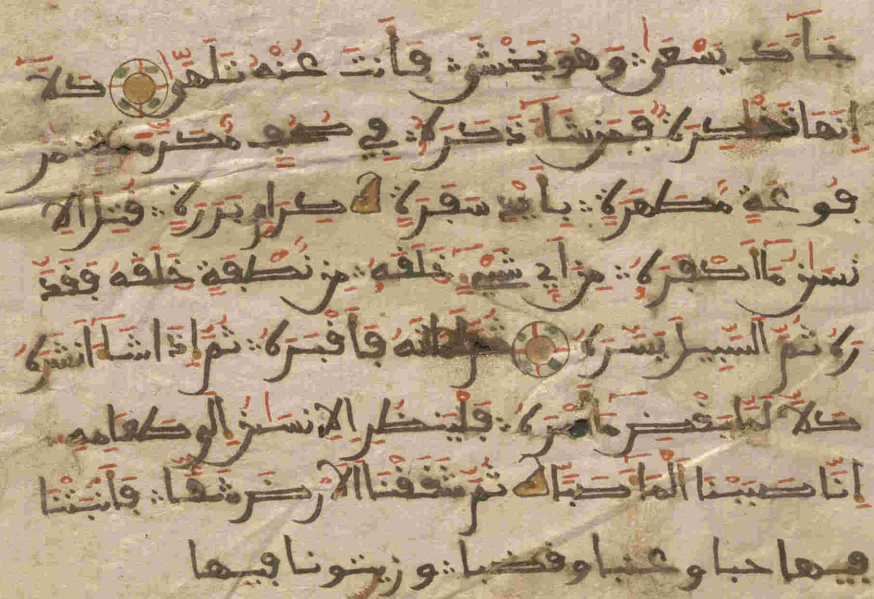 جاءك يسعى وهو يخشى فأنت عنه تلهى كلا
إنها تذكرة فمن شاء ذكره في صحف مكرمة مر
فوعة مطهرة بأيدي سفرة كرام بررة قتل الإ
نسن ما أكفره من أي شيء خلقه من نطفة خلقه فقد
ره ثم السبيل يسره ثم أماته فأقبره ثم إذا شاء أنشره
كلا لما يقض ما أمره فلينظر الإنسن إلى طعامه
إنا صببنا الماء صبا ثم شققنا الأرض شقا فأنبتنا
فيها حبا وعنبا وقضبا وزيتونا فيها